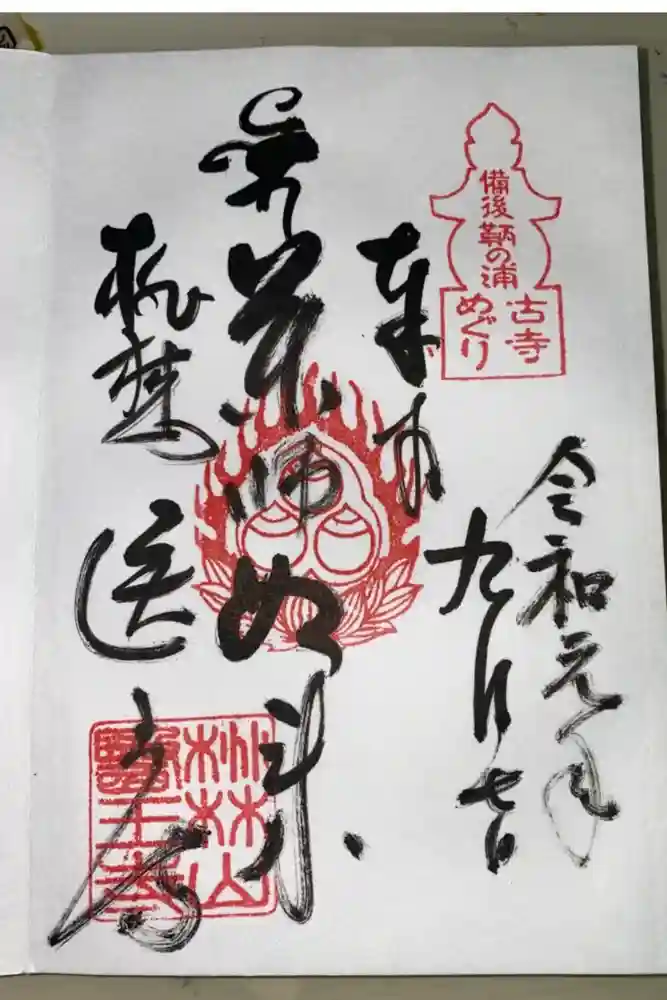 備後鞆の浦
古寺
めぐり
令和元年
九月
奉拝
薬師如来
桃林
医王寺
桃林山
醫王寺